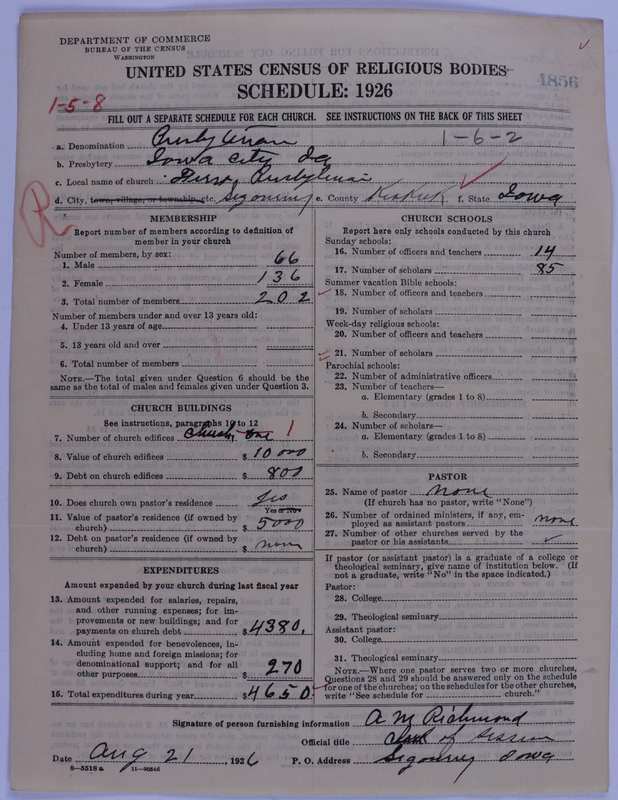 DEPARTMENT OF COMMERCE
BUREAU OF THE CENSUS
WASHINGTON
UNITED STATES CENSUS OF RELIGIOUS BODIES
SCHEDULE: 1926
4856
1-5-8
FILL OUT A SEPARATE SCHEDULE FOR EACH CHURCH. SEE INSTRUCTIONS ON THE BACK OF THIS SHEET
1-6-2
a. Denomination Presbyterian
b. Presbytery Iowa City Ia
c. Local name of church First Presbyterian
d. City, town, village, or township, etc. Sigourney e. County Keokuk f. State Iowa
R
MEMBERSHIP
Report number of members according to definition of member in your church
Number of members, by sex:
1. Male 66
2. Female 136
3. Total number of members 202
Number of members under and over 13 years old:
4. Under 13 years of age
5. 13 years old and over
6. Total number of members
NOTE.—The total given under Question 6 should be the same as the total of males and females given under Question 3.
CHURCH BUILDINGS
See instructions, paragraphs 10 to 12
7. Number of church edifices Church one 1
8. Value of church edifices $10000
9. Debt on church edifices $800
10. Does church own pastor's residence yes
Yes or No
11. Value of pastor's residence (if owned by church) $5000
12. Debt on pastor's residence (if owned by church) $none
EXPENDITURES
Amount expended by your church during last fiscal year
13. Amount expended for salaries, repairs, and other running expenses; for improvements or new buildings; and for payments on church debt $4380.
14. Amount expended for benevolences, including home and foreign missions; for denominational support; and for all other purposes $270
15. Total expenditures during year $4650
CHURCH SCHOOLS
Report here only schools conducted by this church
Sunday schools:
16. Number of officers and teachers 14
17. Number of scholars 85
Summer vacation Bible schools:
18. Number of officers and teachers
19. Number of scholars
Week-day religious schools:
20. Number of officers and teachers
21. Number of scholars
Parochial schools:
22. Number of administrative officers
23. Number of teachers—
a. Elementary (grades 1 to 8)
b. Secondary
24. Number of scholars—
a. Elementary (grades 1 to 8)
b. Secondary
PASTOR
25. Name of pastor none
(If church has no pastor, write "None")
26. Number of ordained ministers, if any, employed as assistant pastors none
27. Number of other churches served by the pastor or his assistants
If pastor (or assistant pastor) is a graduate of a college or theological seminary, give name of institution below. (If not a graduate, write "No" in the space indicated.)
Pastor:
28. College
29. Theological seminary
Assistant pastor:
30. College
31. Theological seminary
NOTE.—Where one pastor serves two or more churches, Questions 28 and 29 should be answered only on the schedule for one of the churches; on the schedules for the other churches, write "See schedule for church."
Signature of person furnishing information A M Richmond
Official title Clerk of Session
Date Aug 21, 1926 P. O. Address Sigourney Iowa
8—5518 a 11—9054d